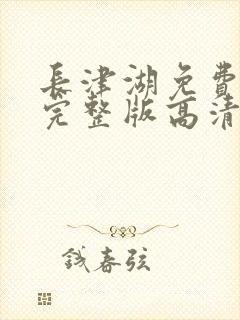 長津湖免費
完整版高清
錢春弦